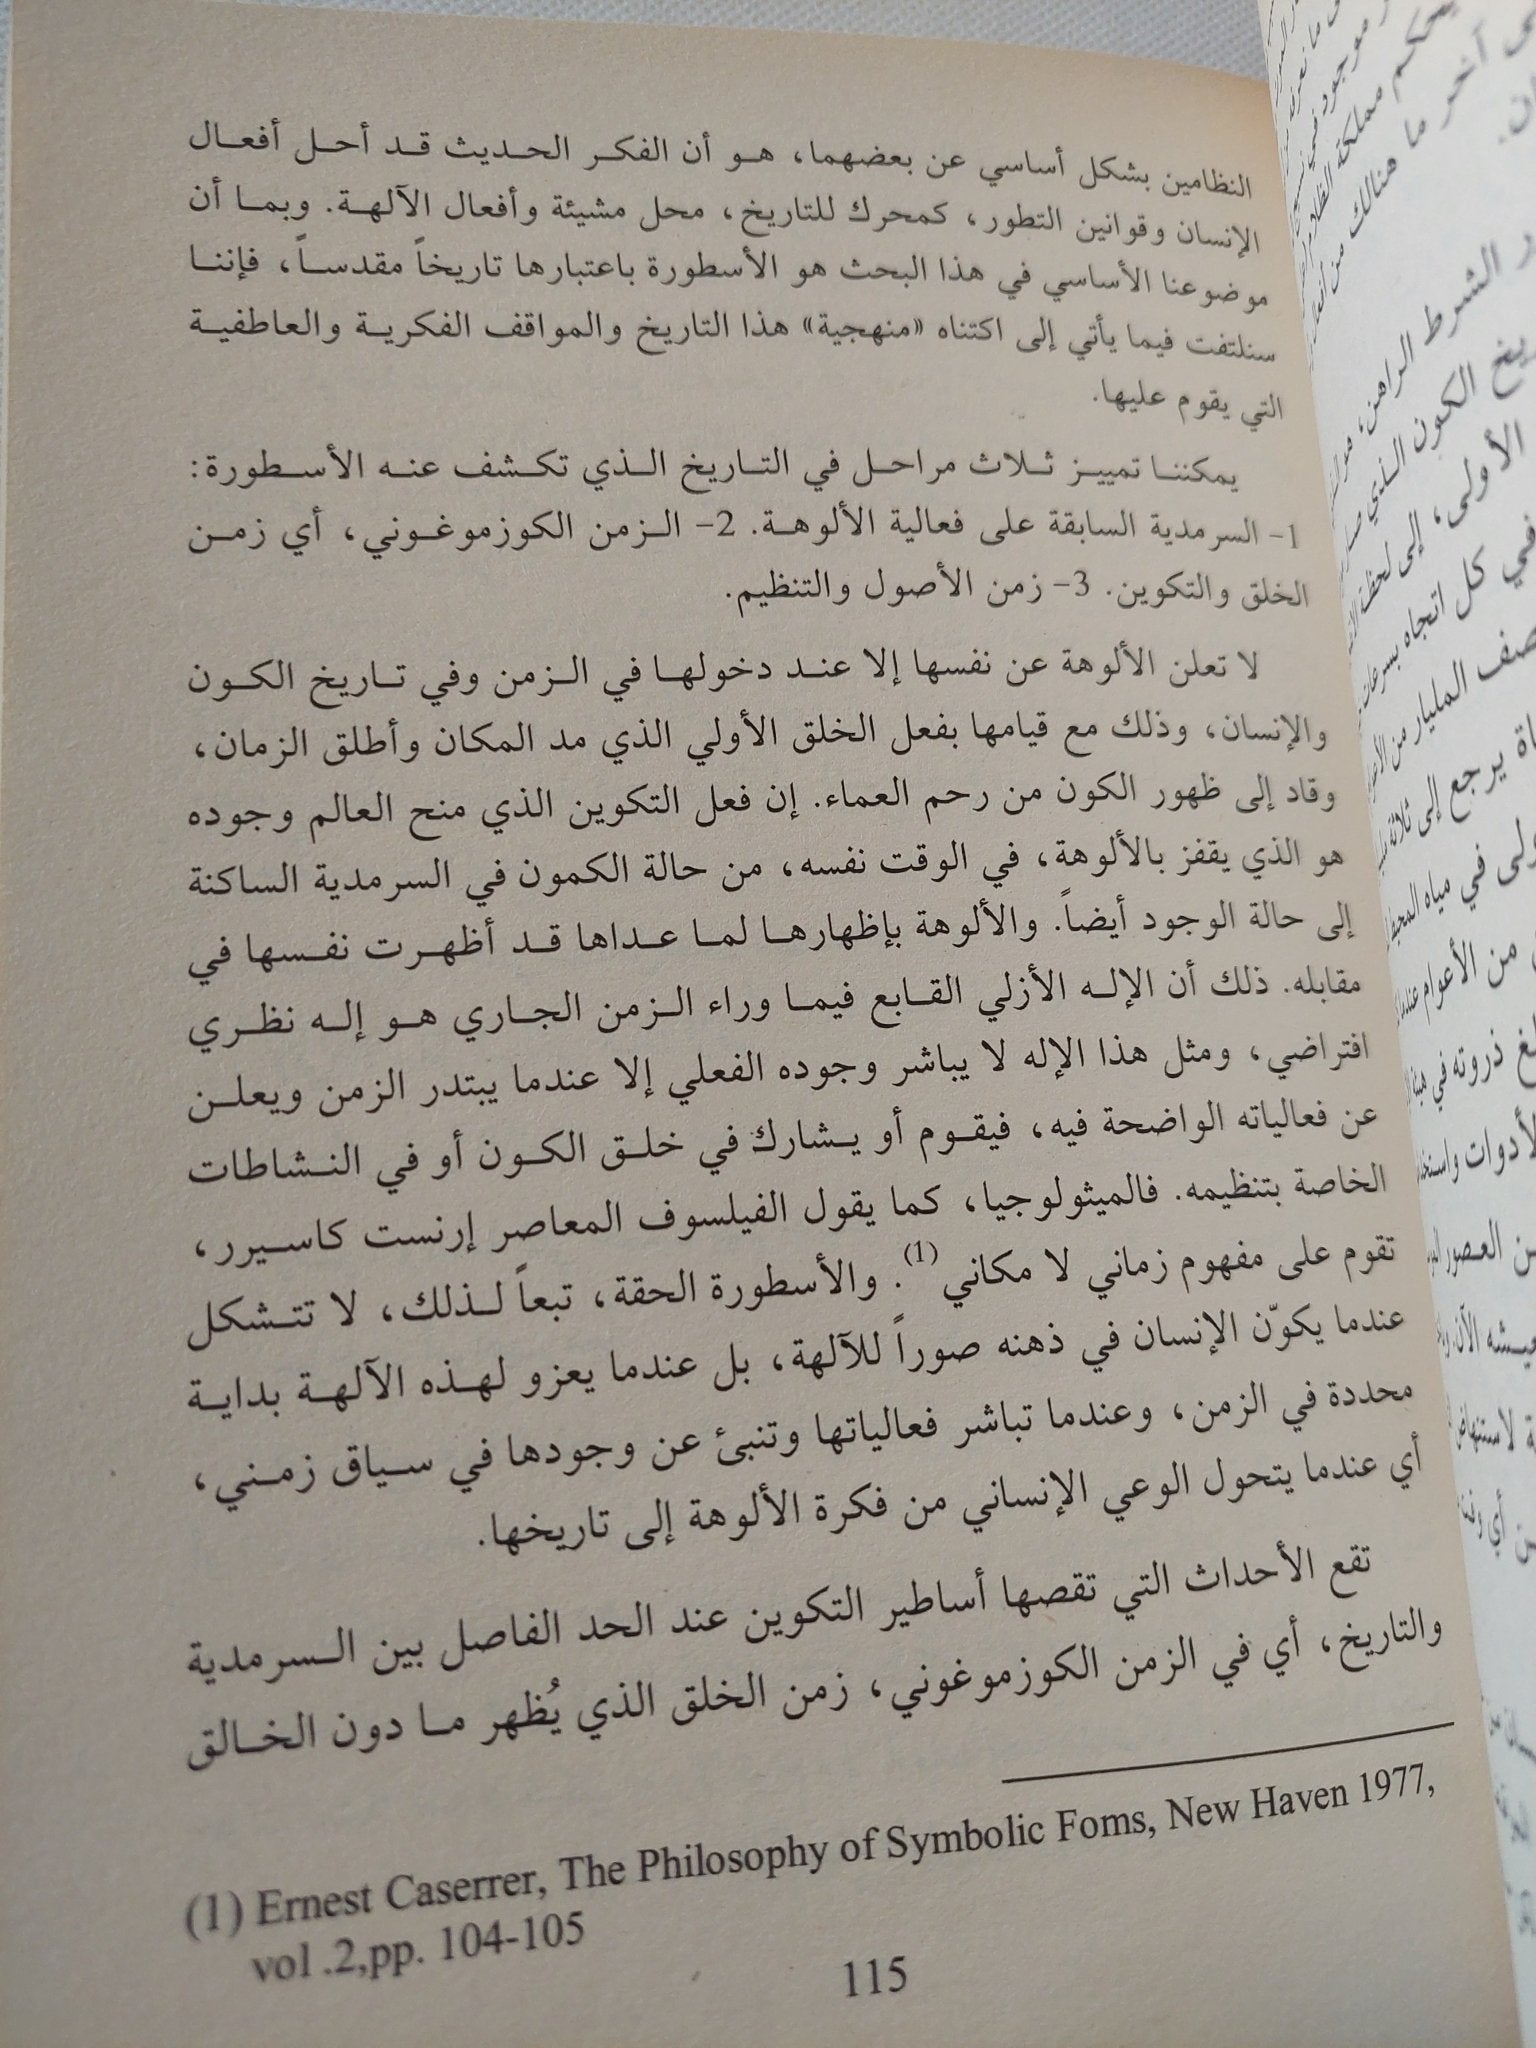 النظامين بشكل أساسي عن بعضهما، هو أن الفكر الحديث قد أحل أفعال
الإنسان وقوانين التطور، كمحرك للتاريخ، محل مشيئة وأفعال الآلهة. وبما أن
موضوعنا الأساسي في هذا البحث هو الأسطورة باعتبارها تاريخاً مقدساً، فإننا
سنلتفت فيما يأتي إلى اكتناه «منهجية» هذا التاريخ والمواقف الفكرية والعاطفية
التي يقوم عليها.
يمكننا تمييز ثلاث مراحل في التاريخ الذي تكشف عنه الأسطورة:
1- السرمدية السابقة على فعالية الألوهة. 2- الزمن الكوزموغوني، أي زمن
الخلق والتكوين. 3- زمن الأصول والتنظيم.
لا تعلن الألوهة عن نفسها إلا عند دخولها في الزمن وفي تاريخ الكون
والإنسان، وذلك مع قيامها بفعل الخلق الأولي الذي مد المكان وأطلق الزمان،
وقاد إلى ظهور الكون من رحم العماء. إن فعل التكوين الذي منح العالم وجوده
هو الذي يقفز بالألوهة، في الوقت نفسه، من حالة الكمون في السرمدية الساكنة
إلى حالة الوجود أيضاً. والألوهة بإظهارها لما عداها قد أظهرت نفسها في
مقابله. ذلك أن الإله الأزلي القابع فيما وراء الزمن الجاري هو إله نظري
افتراضي، ومثل هذا الإله لا يباشر وجوده الفعلي إلا عندما يبتدر الزمن ويعلن
عن فعالياته الواضحة فيه، فيقوم أو يشارك في خلق الكون أو في النشاطات
الخاصة بتنظيمه. فالميثولوجيا، كما يقول الفيلسوف المعاصر إرنست كاسيرر،
تقوم على مفهوم زماني لا مكاني(1). والأسطورة الحقة، تبعاً لذلك، لا تتشكل
عندما يكوّن الإنسان في ذهنه صوراً للآلهة، بل عندما يعزو لهذه الآلهة بداية
محددة في الزمن، وعندما تباشر فعالياتها وتنبئ عن وجودها في سياق زمني،
أي عندما يتحول الوعي الإنساني من فكرة الألوهة إلى تاريخها.
تقع الأحداث التي تقصها أساطير التكوين عند الحد الفاصل بين السرمدية
والتاريخ، أي في الزمن الكوزموغوني، زمن الخلق الذي يُظهر ما دون الخالق
(1) Ernest Caserrer, The Philosophy of Symbolic Foms, New Haven 1977,
vol .2,pp. 104-105
115
يحكم مملكة
آخر ما هنالك من
الشرط الراهن،
الكون الذي
الأولى، إلى لحظة
في كل اتجاه بسرعات
المليار من
يرجع إلى ثلاثة
في مياه المحيط
من الأعوام
ذروته في
الأدوات
العصور
الآن
أي وقت